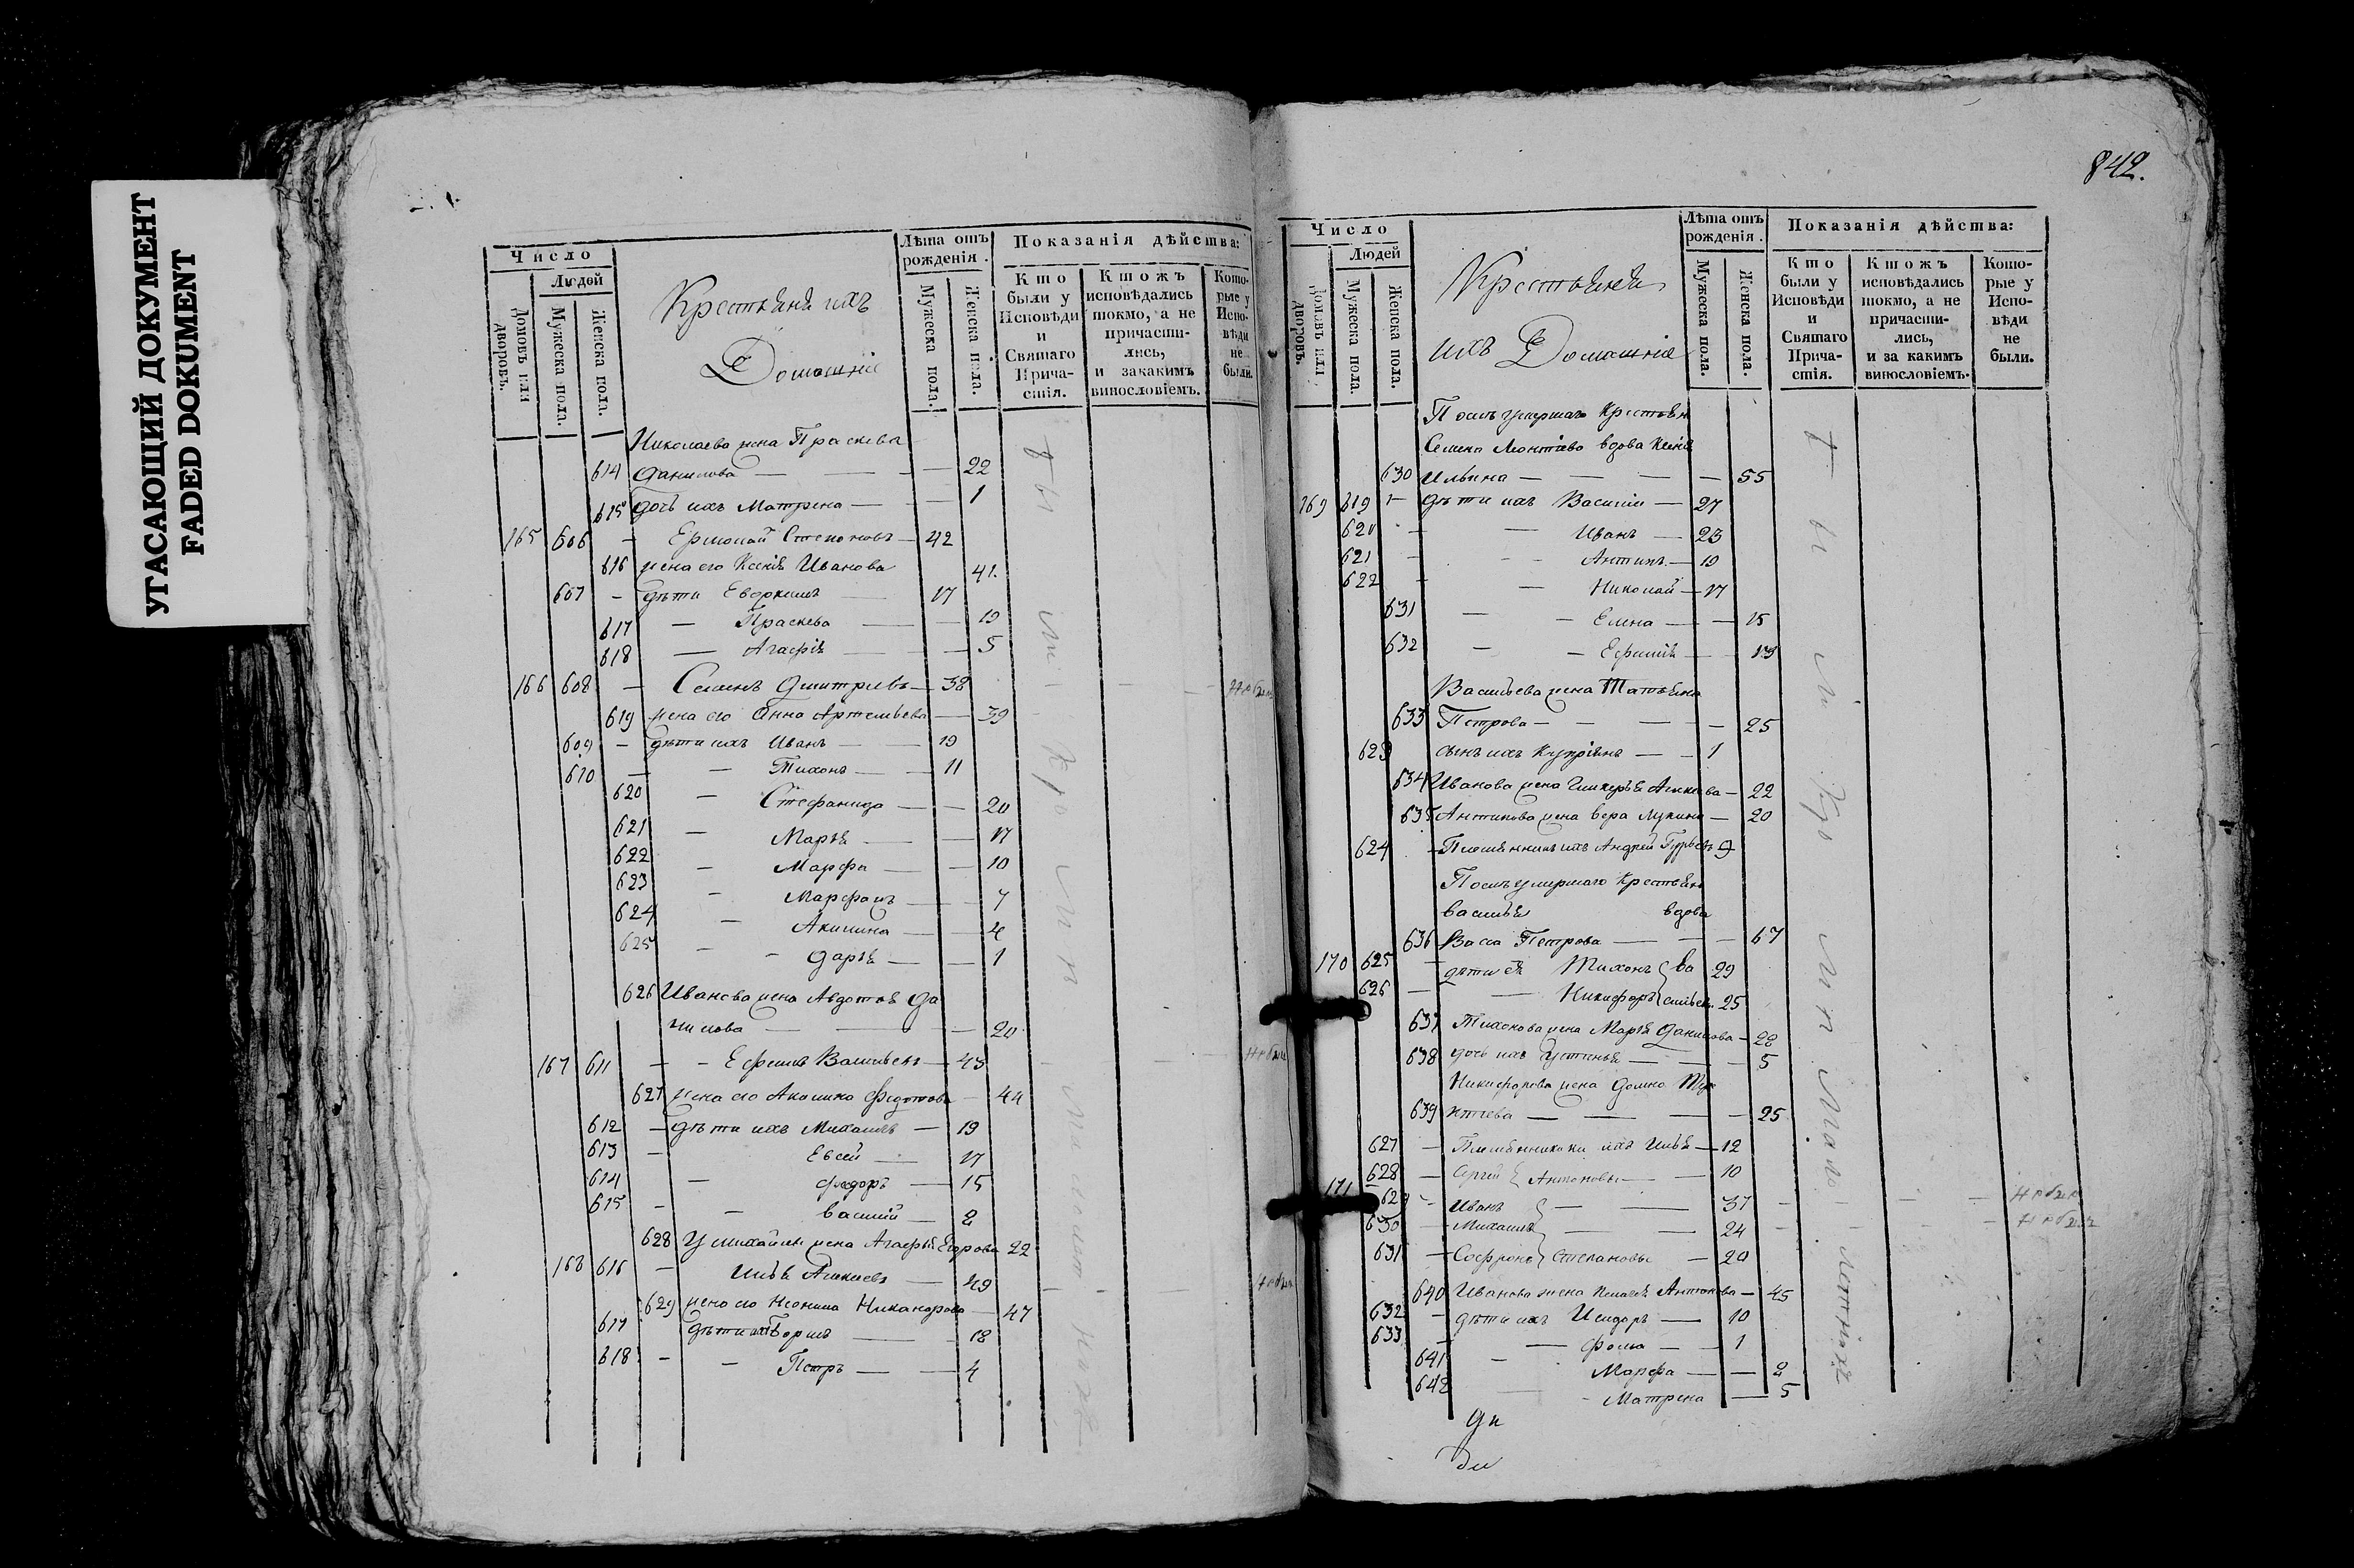 УГАСАЮЩИЙ ДОКУМЕНТ
FADED DOKUMENT
842.
Число
Людей
Домовъ или дворовъ.
Мужеска пола.
Женска пола.
Крестьяне ихъ
Домашнія
Лѣта отъ рожденія.
Мужеска пола.
Женска пола.
Показанія дѣйства:
Кто были у Исповѣди и Святаго Причастія.
Ктожъ исповѣдались токмо, а не причастились, и закакимъ винословіемъ.
Которые у Исповѣди не были.
Николаева жена Праскева
614 Данилова — — — 22
615 дочь ихъ Матрена — — 1
165 606 — Ермолай Степановъ — 42
616 жена его Ксенія Иванова 41
607 — дѣти Евдокимъ — 17
617 — Праскева — — 19
618 — Агафія — — 5
166 608 — Семенъ Дмитріевъ — 38
619 жена его Анна Артемьева — 39
609 — дѣти ихъ Иванъ — 19
610 — — Тихонъ — 11
620 — Стефанида — — 20
621 — Марья — — 17
622 — Марфа — — 10
623 — Марфа — — 7
624 — Акилина — — 4
625 — — Дарья — — 1
626 Иванова жена Авдотья Да
нилова — — — 20
167 611 — — Ефимъ Васильевъ — 43
627 жена его Акилина Федотова — 44
612 — дѣти ихъ Михаилъ — 19
613 — Евсей — 17
614 — Федоръ — 15
615 — — Василій — 2
628 У Михайлы жена Агафья Егорова 22
168 616 — Илья Алексеевъ — 49
629 жена его Неонила Никанорова — 47
617 дѣти ихъ — 18
618 — — Петръ — — 4
Число
Людей
Домовъ или дворовъ.
Мужеска пола.
Женска пола.
Крестьяне
ихъ Домашнія
Лѣта отъ рожденія.
Мужеска пола.
Женска пола.
Показанія дѣйства:
Кто были у Исповѣди и Святаго Причастія.
Ктожъ исповѣдались токмо, а не причастились, и за какимъ винословіемъ.
Которые у Исповѣди не были.
Послѣ умершаго Крестьян
Семена Леонтіева вдова Ксенія
630 Ильина — — — — 55
169 619 — дѣти ихъ Василій — 27
620 — — Иванъ — 23
621 — — Антипъ — 19
622 — — Николай — 17
631 — — Елена — — 15
632 — — Ефимія — 13
Васильева жена Татьяна
633 Петрова — — — — 25
623 сынъ ихъ Купріянъ — — 1
634 Иванова жена Гликерья — 22
635 Антипова жена Вера Лукина — 20
624 — Племянникъ ихъ Андрей 9
Послѣ умершаго Крестьян
Василья вдова
636 Васа Петрова — — — 67
170 625 — дѣти ея Тихонъ } Ва 29
626 — — Никифоръ } сильев. 25
637 Тихонова жена Марья Данилова — 28
638 дочь ихъ Устинья — — 5
Никифорова жена Домна
639 — — — — 25
627 — Племянники ихъ Илья — 12
628 — Сергей } Антоновы — — 10
171 629 — Иванъ } — — 37
630 — Михаилъ } — — 24
631 — Софронъ } Степановы — 20
640 Иванова жена Антонова — 45
632 — дѣти ихъ Исидоръ — 10
633 — — Фома — — 1
641 — Марфа — — 2
642 — — Матрена — 5